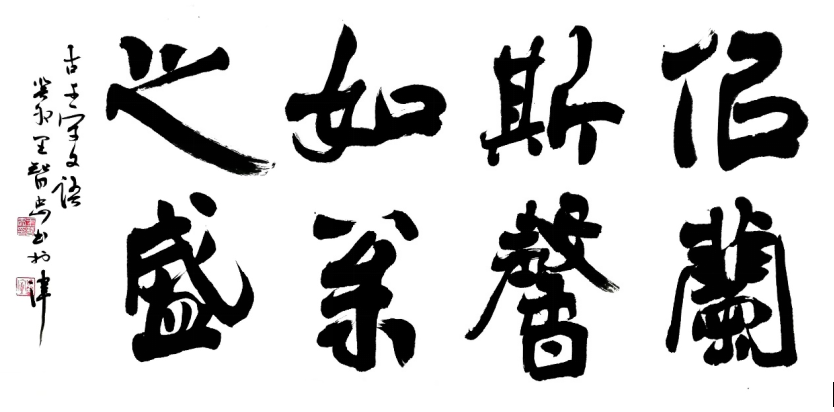 似蘭
斯馨
如松
之盛
古千字文語
癸卯王智書於津